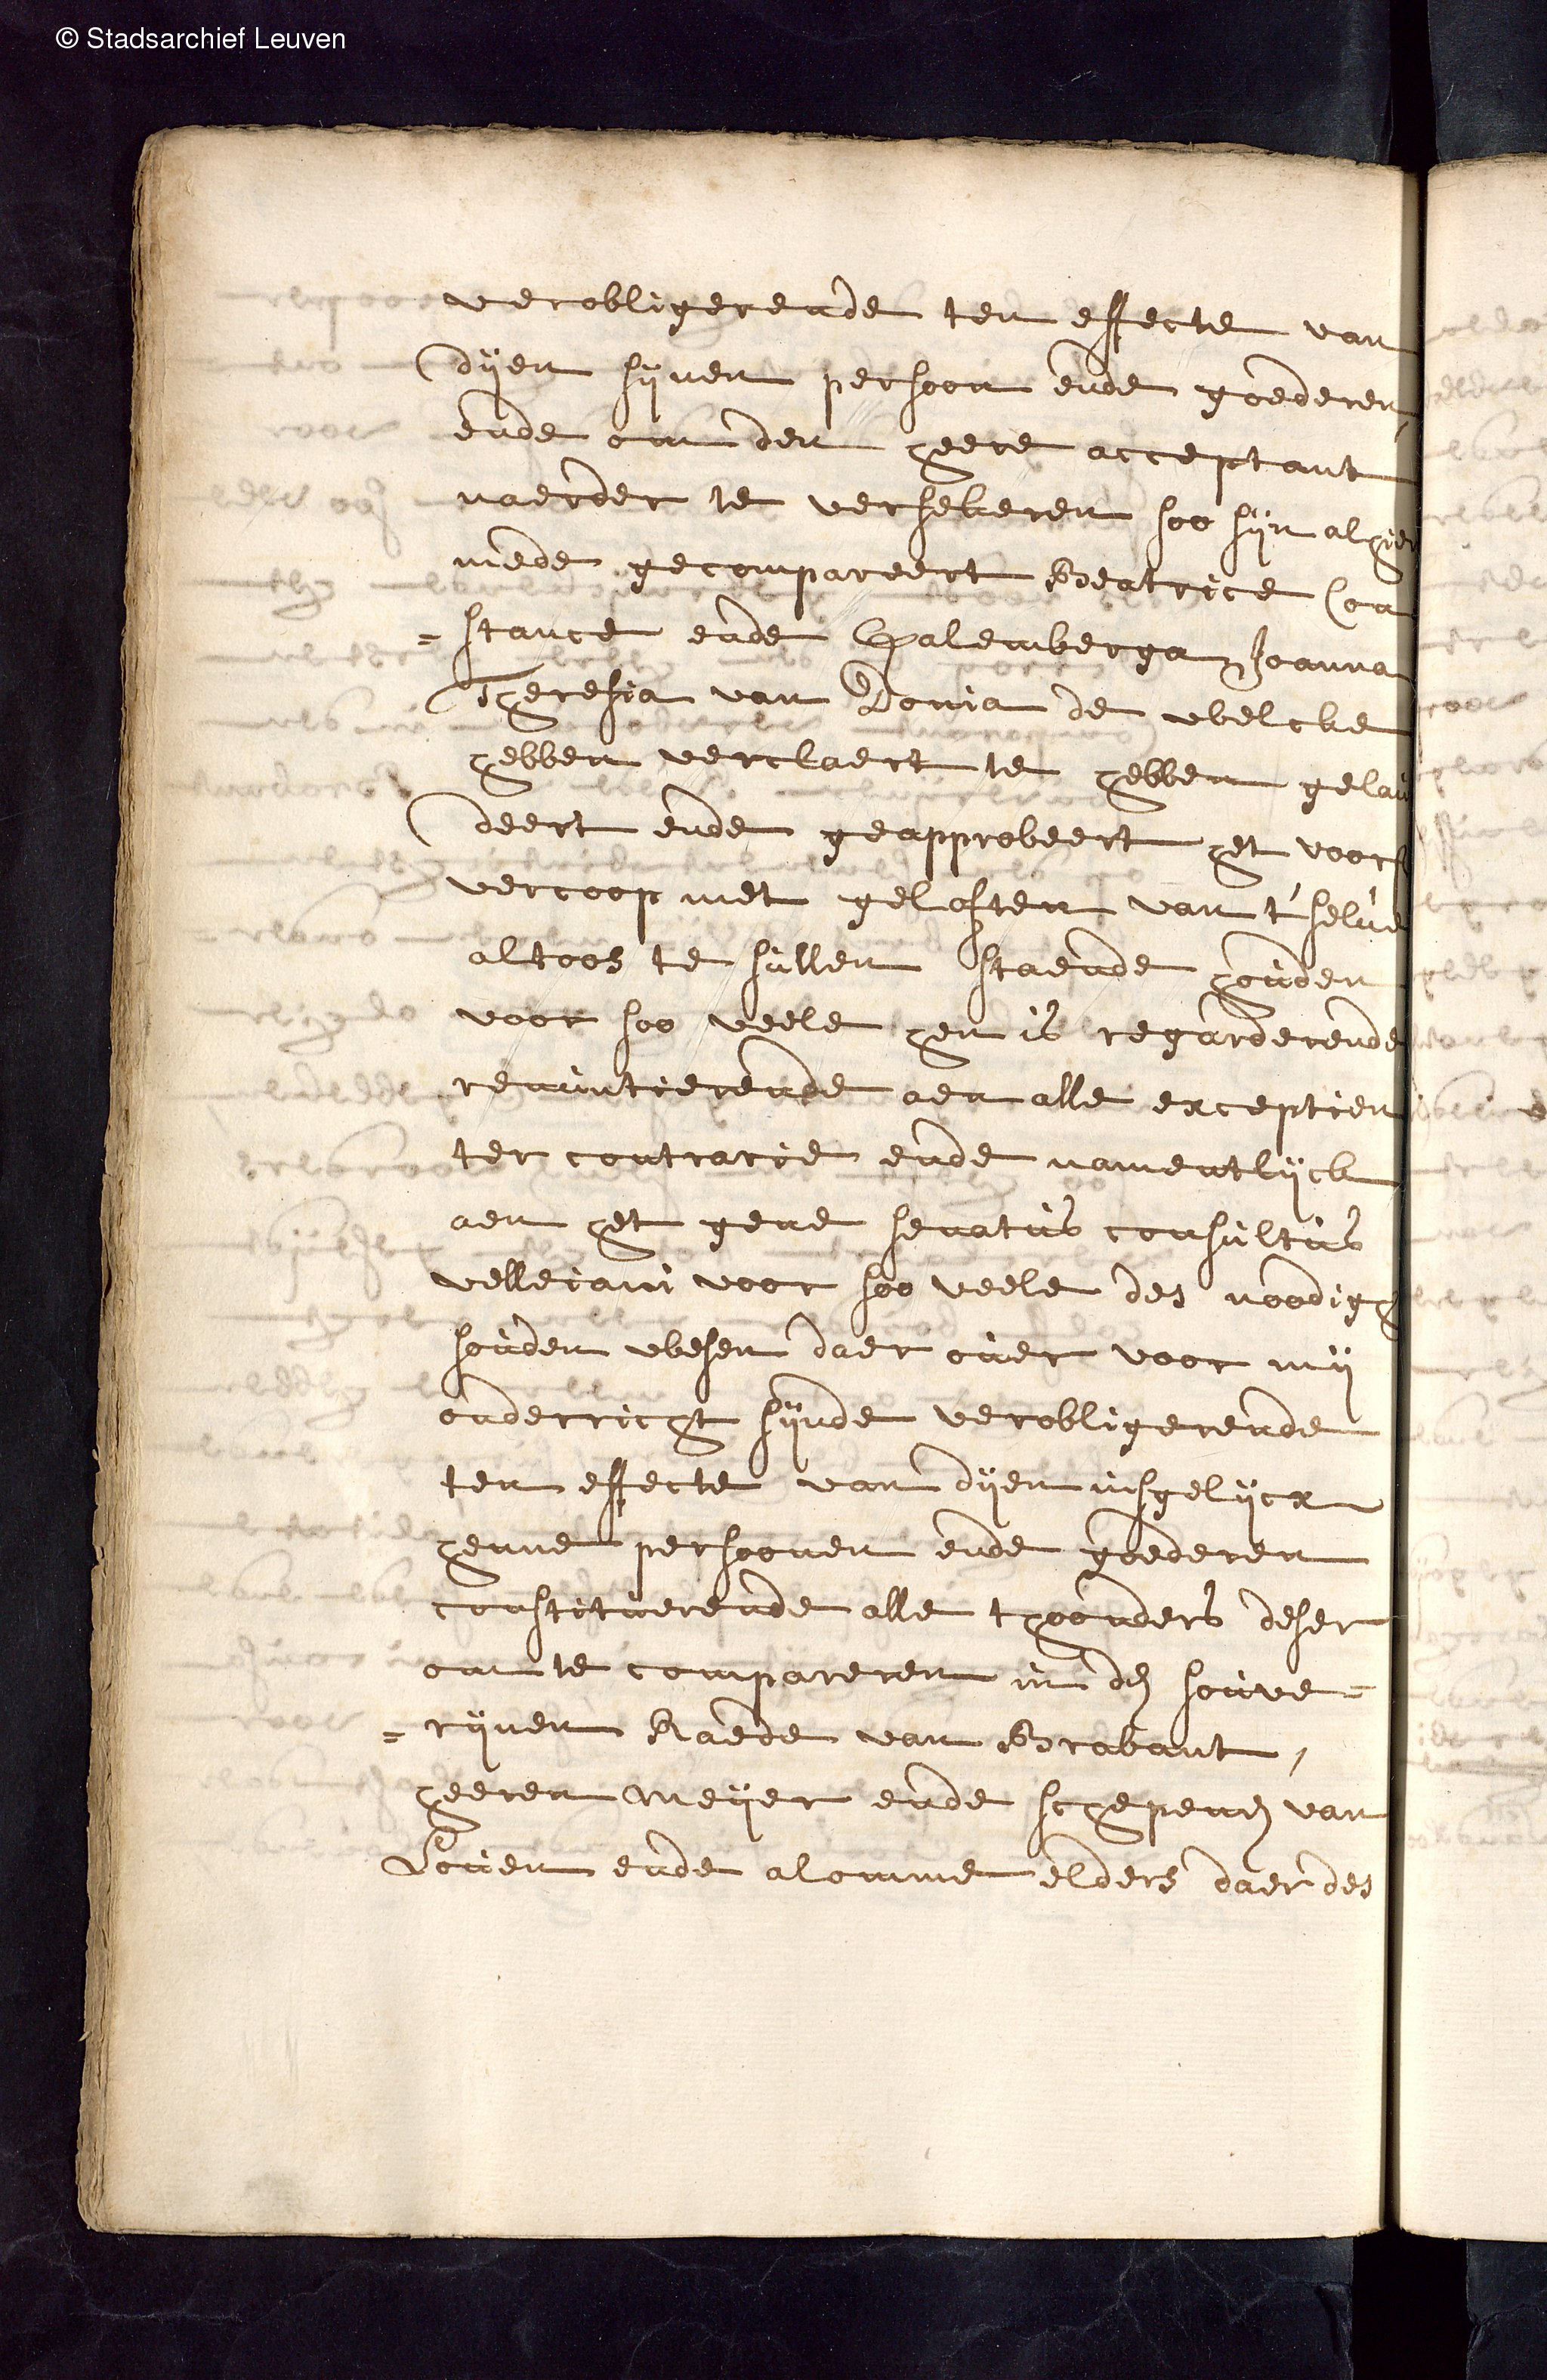 © Stadsarchief Leuven
verobligerende ten effecte van
dijen sijnen persoon ende goederen
ende om den heere acceptant
naerder te versekeren soo sijn alhier
mede gecompareert Beatrice Con
=stance ende Walemberga Joanna
Theresia van Donia de welcke
hebben verclaert te hebben gelau
deert ende geapprobeert het voors
vercoop met geloften van t'selve
altoos te sullen staende houden
voor soo veele hen is regarderende
renuntierende aen alle exceptien
ter contrarie ende namentlijck
aen het gene senatus consultus
velleiani voor soo veele des noodigh
souden wesen daer over voor mij
onderricht sijnde verobligerende
ten effecte van dijen insgelijcx
henne persoonen ende goederen
constituerende alle thoonders deser
om te compareren in den souve=
=rijnen Raede van Brabant,
heeren Meijer ende schepenen van
Loven ende alomme elders daer des